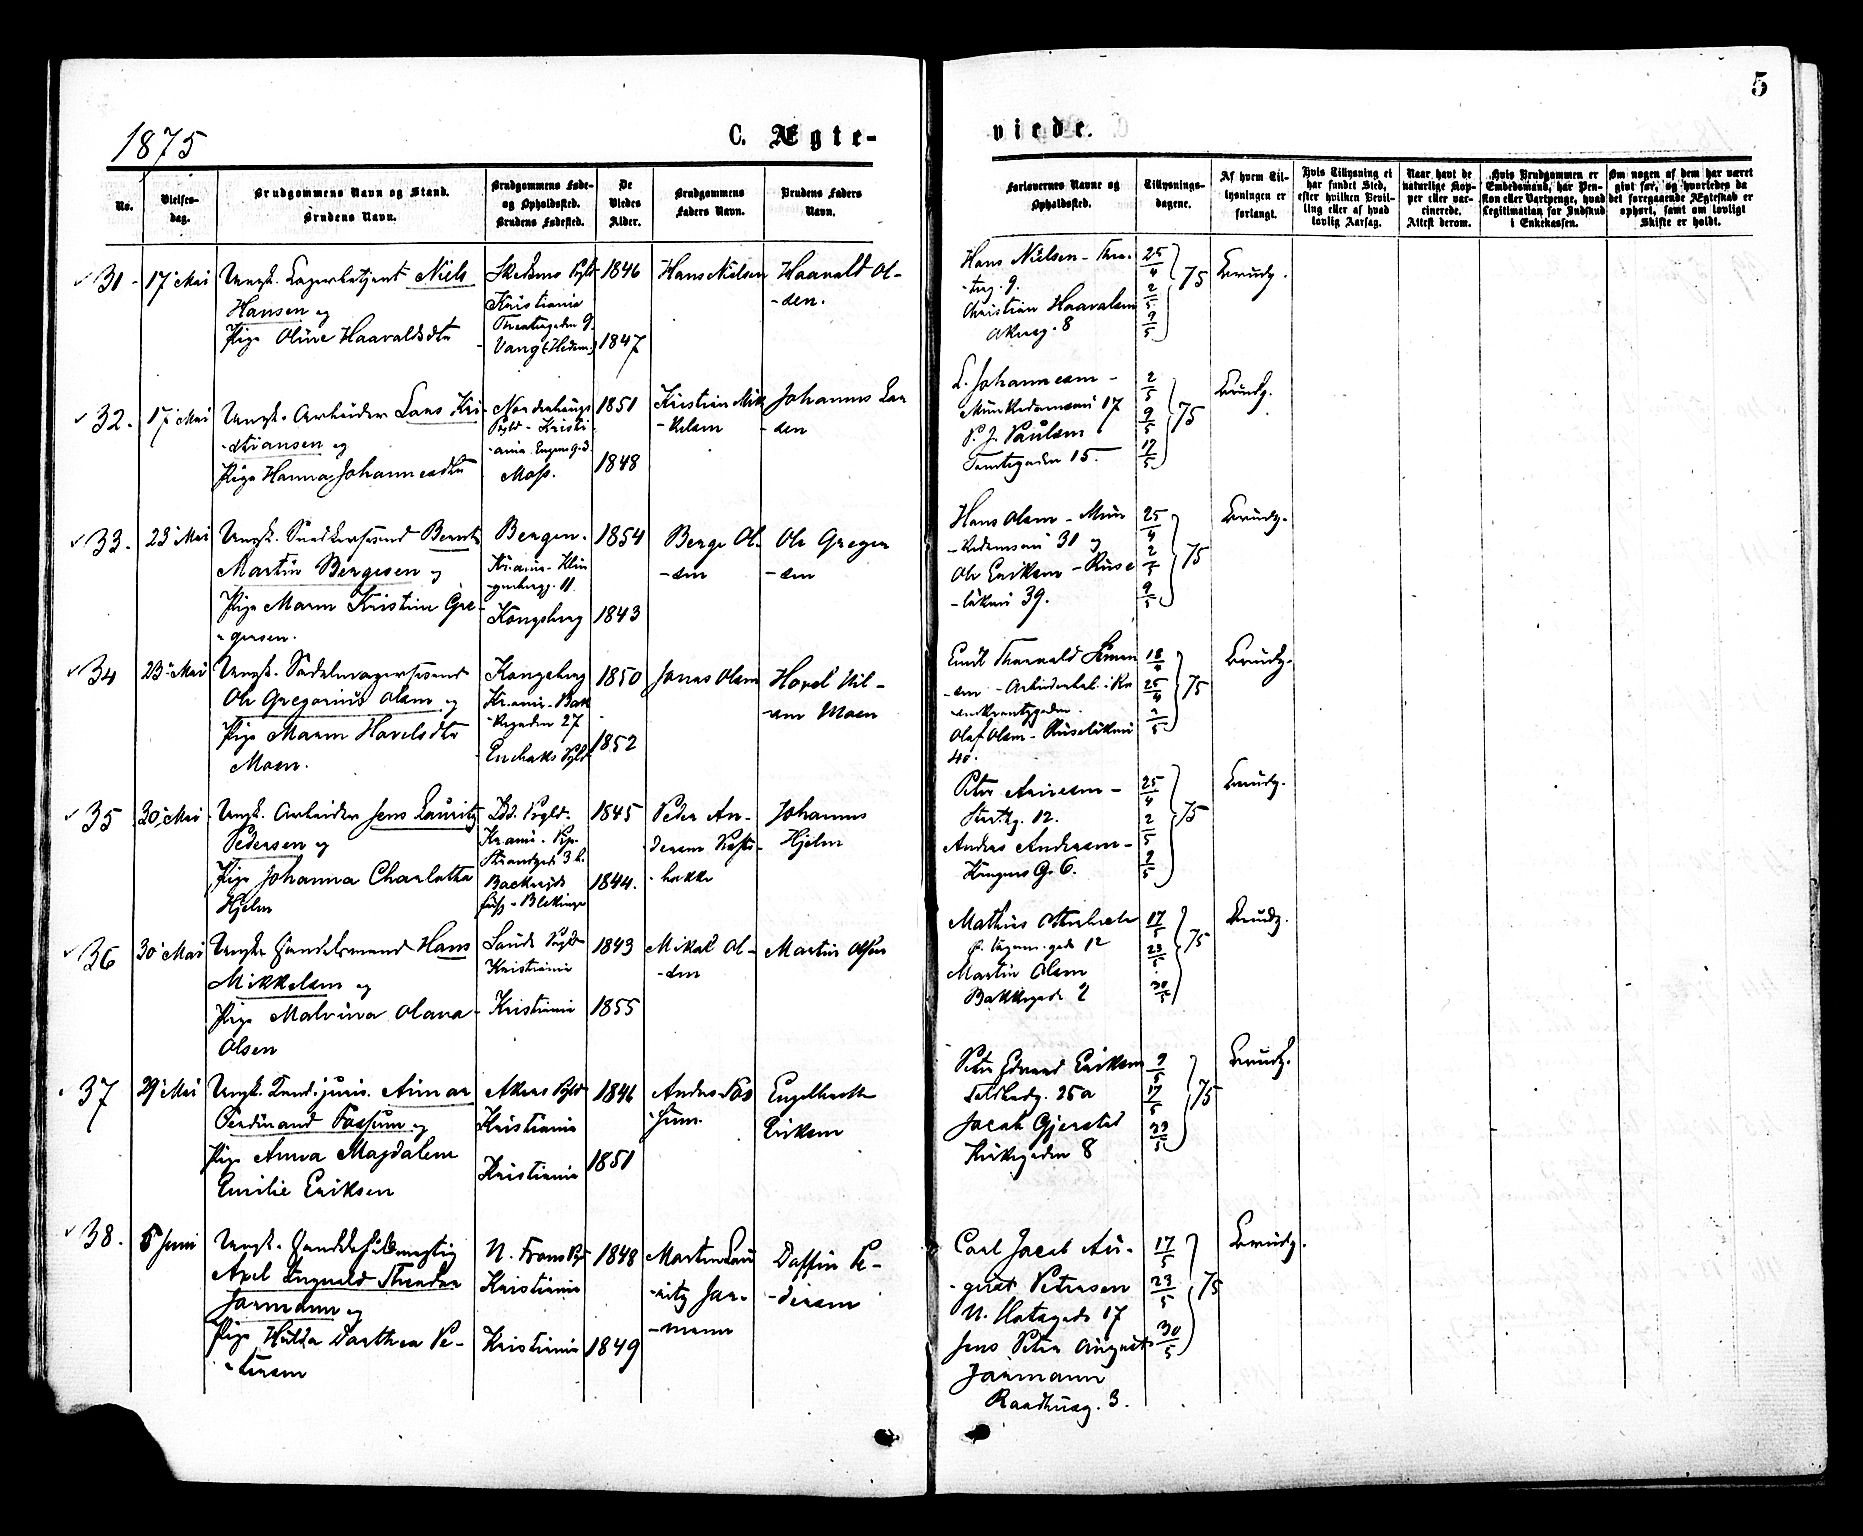 5
1875
C. Ægte-
viede.
No.
Vielses-
dag.
Brudgommens Navn og Stand.
Brudens Navn.
Brudgommens Føde-
og Opholdssted.
Brudens Fødested.
De
Viedes
Alder.
Brudgommens
Faders Navn.
Brudens Faders
Navn.
Forlovernes Navne og
Opholdssted.
Tillysnings-
dagene.
Af hvem Til-
lysningen er
forlangt.
Hvis Tillysning ei
har fundet Sted,
efter hvilken Bevil-
ling eller af hvad
lovlig Aarsag.
Naar havt de
naturlige Kop-
per eller vac-
cinerede.
Attest derom.
Hvis Brudgommen er
Embedsmand, har Pen-
sion eller Vartpenge, hvad
Legitimation for Indskud
i Enkekassen.
Om nogen af dem har været
gift før, og hvorledes da
det foregaaende Ægteskab er
ophørt, samt om lovligt
Skifte er holdt.
31. 17 Mai Ungk. Lagerbetjent Niels
Hansen og
Pige Oline Haavaldsdtr
Kristiania
Theatergaden 9.
Vang (Hedem.)
1846
1847
Hans Nielsen
Haavald Ol-
-sen.
Hans Nielsen - Thea-
-terg. 9.
Christian Haavalsen
Akersg. 8
25/4 2/5 9/5 75
Brudg.
32. 17 Mai Ungk. Arbeider Lars Kri-
-stiansen og
Pige Hanna Johannesdtr
Norderhougs
Pgld - Kristi-
-ania
Moss.
1851
1848
Kristian Mik-
-kelsen
Johannes Lar
-sen
L. Johannesen -
Munkedamsvei 17
P. J. Paulsen
Tomtegaden 15.
2/5 9/5 17/5 75
Brudg.
33. 23 Mai Ungk. Snedkersvend Bernt
Martin Bergesen og
Pige Maren Kristine Gre-
-gersen.
Bergen.
Kr.ania - Klin
-genbergg. 11.
Kongsberg
1854
1843
Berge Ol-
-sen
Ole Greger
-sen
Hans Olsen - Mun
-kedamsvei 31 og
Ole Eriksen - Ruse
-løkvei 39.
25/4 2/5 9/5 75
Brudg.
34 23 Mai Ungk. Sadelmagersvend
Ole Gregorius Olsen og
Pige Maren Havelsdtr
Moen.
Kongsberg
Kr.ania - Bak
-kegaden 27
Enebaks Pgld
1850
1852
Jonas Olsen
Havel Nil-
-sen Moen
Emil Thorvald Simon
-sen - Arbeiderbol. i Ro
-senkrantzgaden.
Olaf Olsen - Ruseløkvei
40.
18/4 25/4 2/5 75
Brudg.
35 30 Mai Ungk. Arbeider Jens Lauritz
Pedersen og
Pige Johanna Charlotta
Hjelm
Pgld.
Kr.ania - Pip.
Strandgd. 3 b.
Backaryds
1845
1844.
Peder An-
dersen
-bakke
Johannes
Hjelm
Anders Andersen -
25/4 2/5 9/5 75
Brudg.
36 30 Mai Ungk. Handelsmand Hans
Mikkelsen og
Pige Malvina Olava
Olsen
Lands Pgld
Kristiania
Kristiania
1843
1855
Mikal Ol-
-sen
Martin Olsen
Mathias
Martin Olsen
Bakkegade 2
17/5 23/5 30/5 75
Brudg.
37 29 Mai Ungk. Cand. juris. Aimar
Ferdinand Fossum og
Pige Anna Magdalene
Emilie Eriksen
Akers Pgld
Kristiania
Kristiania
1846
1851
Anders Fos
-sum.
Engelbrett
Eriksen
Peter Edvard Eriksen
25a
Jacob Gjersted
Kirkegaden 8
9/5 17/5 23/5 75
Brudg.
38. 5 Juni Ungk. Handelsfuldmægtig
Axel Ingvald Theodor
Jarmann og
Pige Hulda Dorthea Pe-
-tersen
Kristiania
Kristiania
1848
1849
Morten Lau
-ritz Jar-
-mann
Daffin Pe-
-dersen
Carl Jacob Au-
-gust Petersen
Jens Peter August
Jarmann
Raadhusg. 3.
17/5 23/5 30/5 75
Brudg.